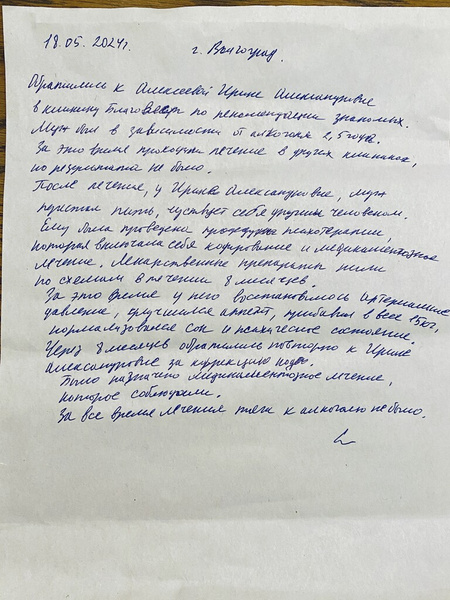 18.05.2024г.
г. Волгоград.
Обратились к Алексеевой Ирине Александровне
в клинику Благовест по рекомендации знакомых.
Муж был в зависимости от алкоголя 2,5 года.
За это время проходили лечение в других клиниках,
но результата не было.
После лечения, у Ирины Александровны, муж
перестал пить, чуствует себя другим человеком.
Ему была проведена процедура психотерапии,
которая включала себя кодирование и медикаментозное
лечение. Лекарственные препараты пили
по схемам в течении 8 месяцев.
За это время у него востановилось артериальное
давление, улучшился аппетит, прибавил в весе 15кг,
нормализовался сон и психическое состояние.
Через 8 месяцев обратились повторно к Ирине
Александровне за коррекцию
Было назначено медикаментозное лечение,
которое соблюдали.
За все время лечения тяги к алкоголю не было.